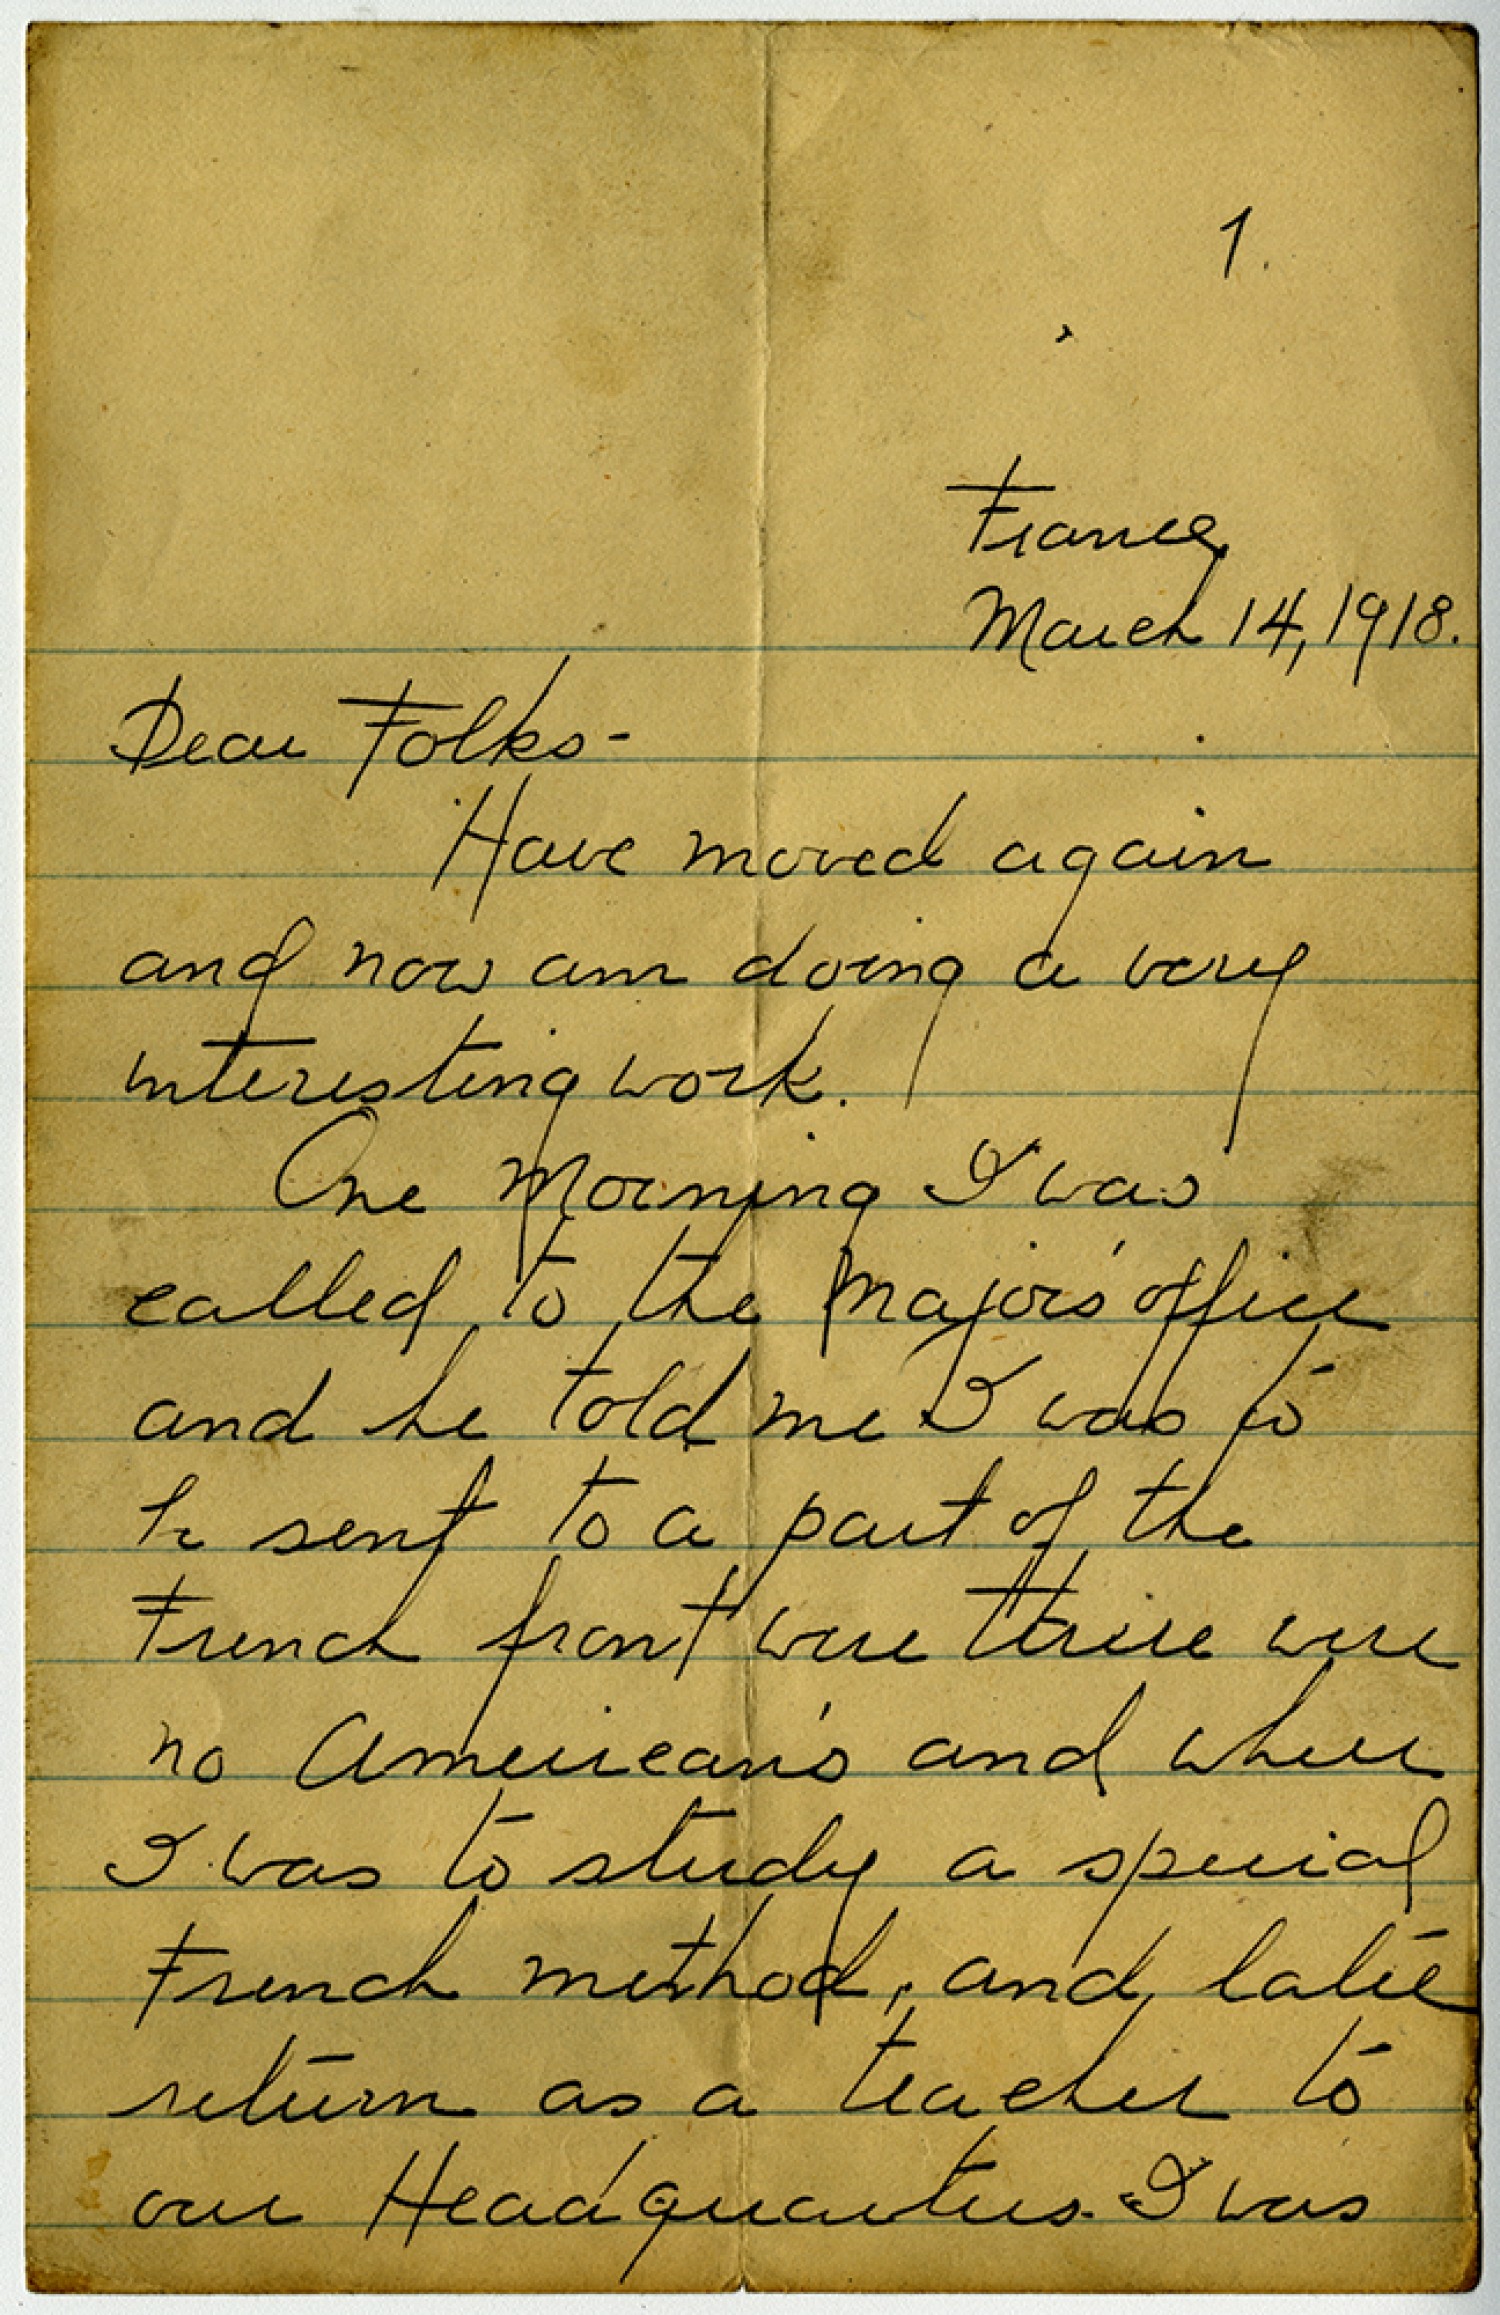 1.
France,
March 14, 1918.
Dear Folks-
Have moved again
and now am doing a very
interesting work.
One Morning I was
called to the Major's office
and he told me I was to
be sent to a part of the
French front were there were
no American's and where
I was to study a special
French method, and later
return as a teacher to
our Headquarters. I was